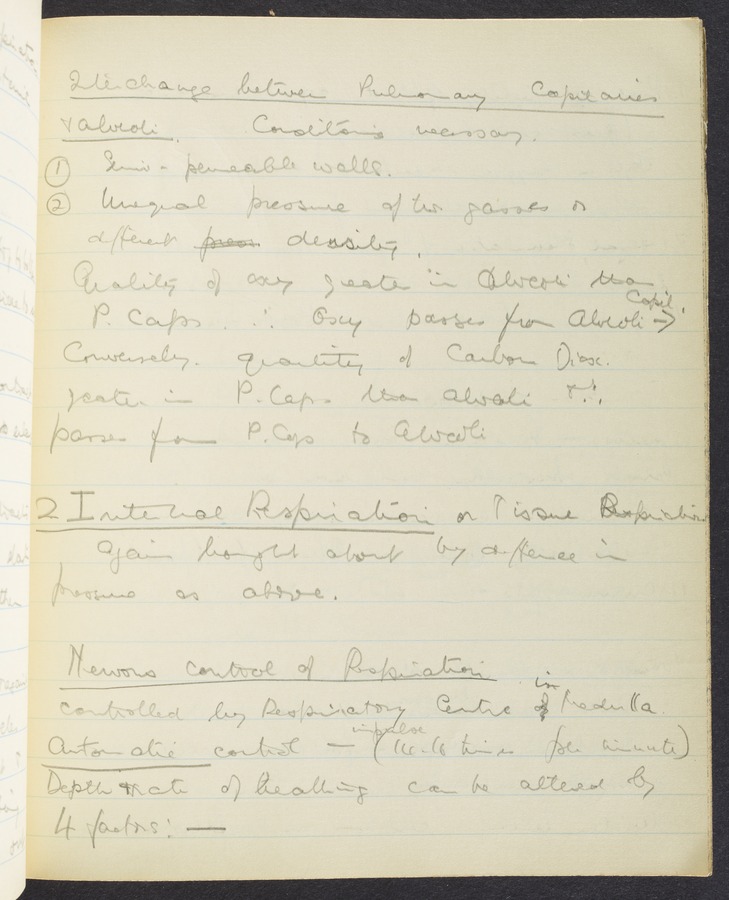 Interchange between Pulmonary Capilaries
& alveoli. Conditions necessary.
① Semi-permeable walls.
② Unequal pressure of two gasses or
different pres density.
Quality of oxy greater in Alveoli than
P. Caps. ∴ Oxy passes from Alveoli → Capil.
Conversely. quantity of Carbon Diox.
greater in P. Caps than alveoli & ∴
passes from P. Caps to Alveoli
2 Internal Respiration or Tissue Respiration
Again brought about by difference in
pressure as above.
Nervous control of Respiration
controlled by Respiratory Centre in Medulla.
Automatic control — impulse (16-18 times per minute)
Depth & rate of breathing can be altered by
4 factors: —